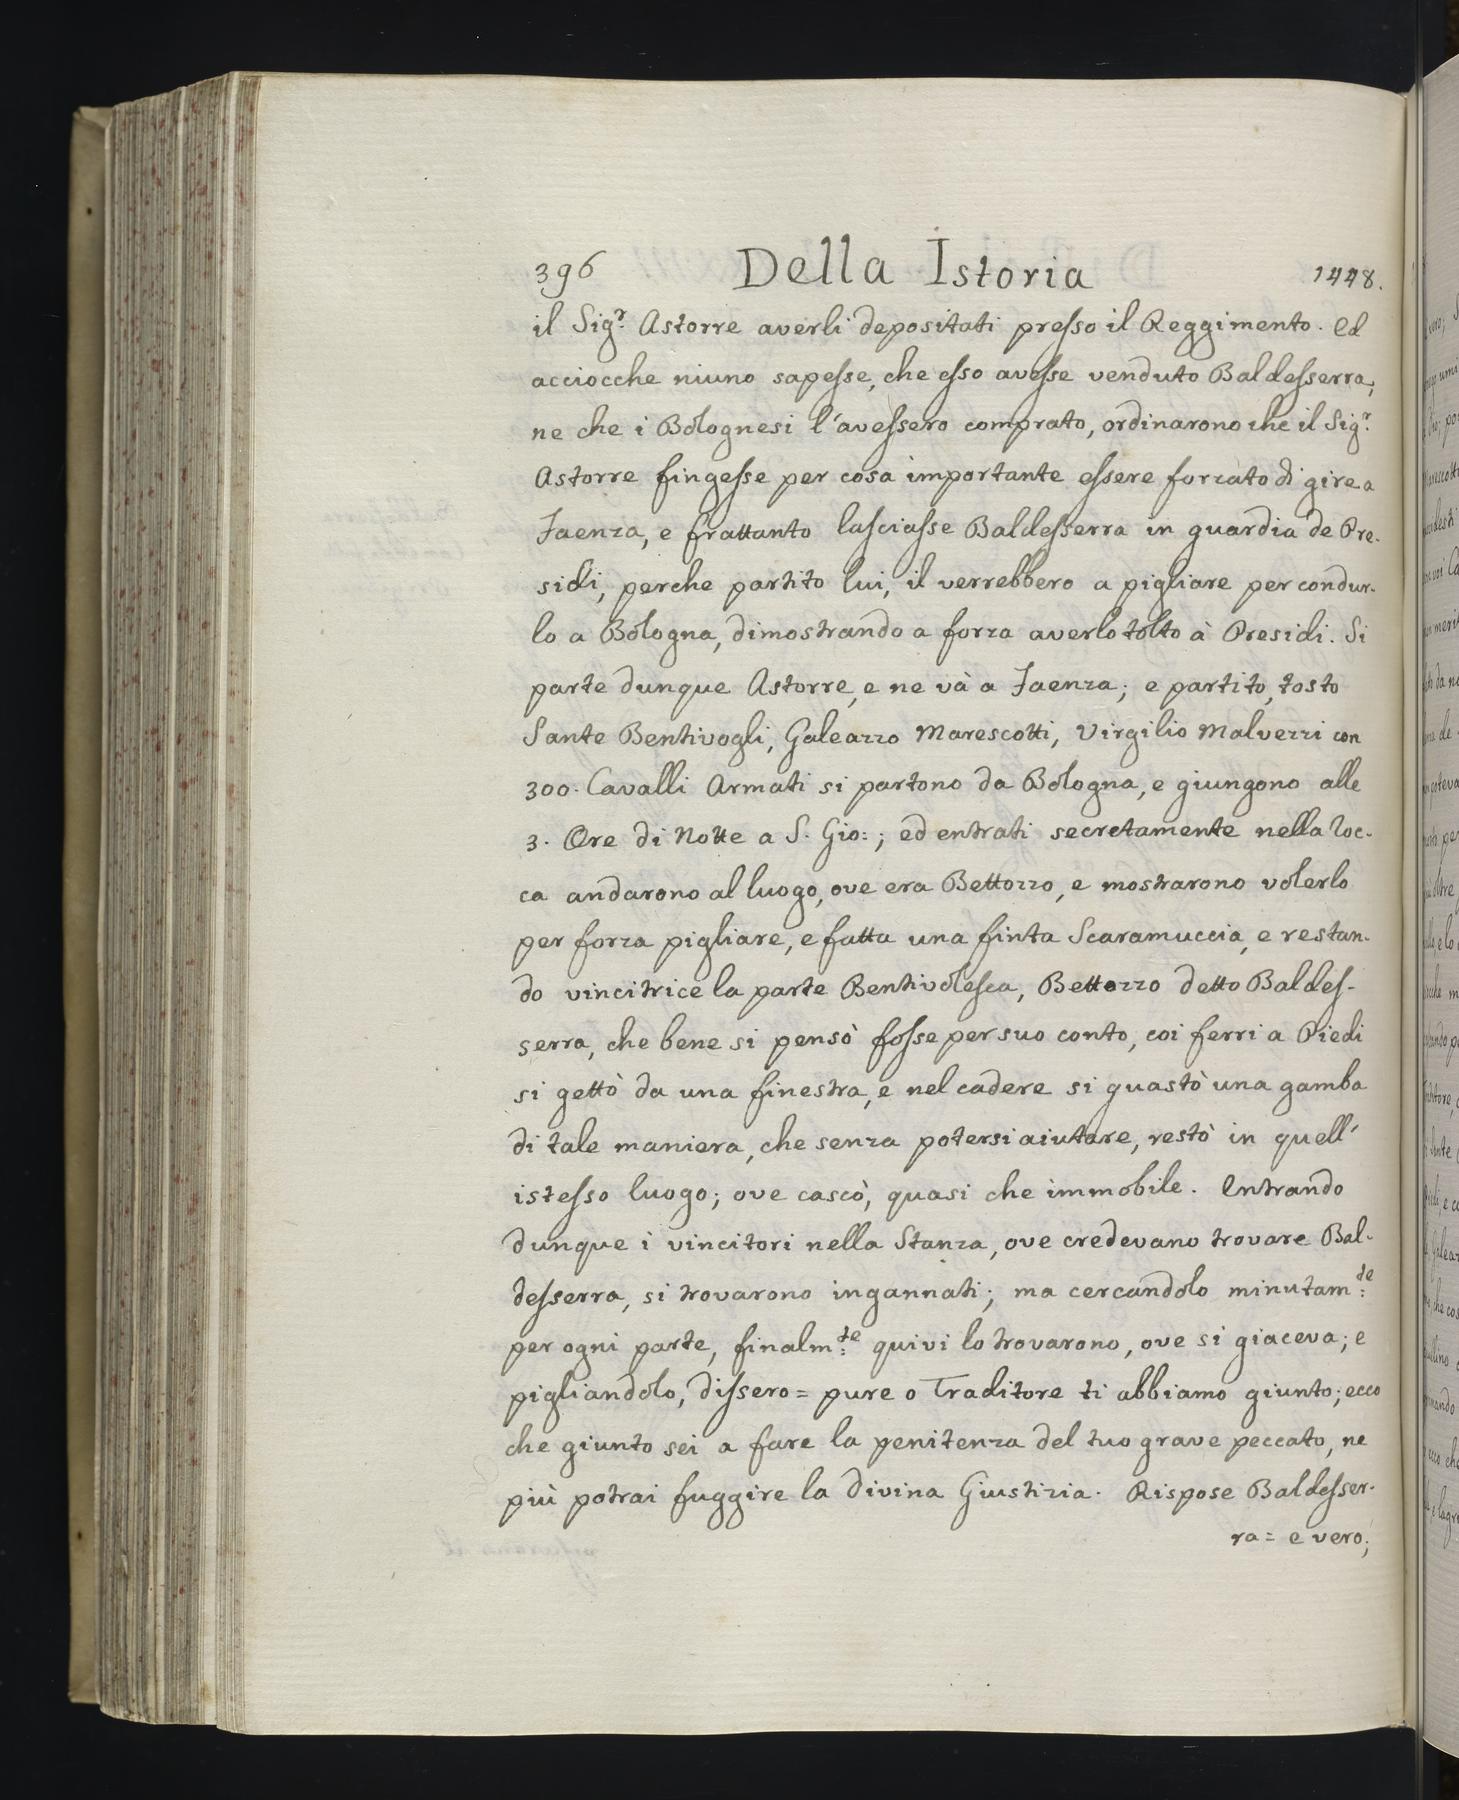 396 Della Istoria 1448.
il Sigr. Astorre averli depositati presso il Reggimento. Ed
acciocche niuno sapesse, che esso avesse venduto Baldesserra,
ne che i Bolognesi l'avessero comprato, ordinarono che il Sigr.
Astorre fingesse per cosa importante essere forzato di gire a
Faenza, e frattanto lasciasse Baldesserra in guardia de Pre-
sidi, perche partito lui, il verrebbero a pigliare per condur-
lo a Bologna, dimostrando a forza averlo tolto à Presidi. Si
parte dunque Astorre, e ne và a Faenza; e partito, tosto
Sante Bentivogli, Galeazzo Marescotti, Virgilio Malvezzi con
300. Cavalli Armati si partono da Bologna, e giungono alle
3. Ore di Notte a S. Gio:; ed entrati secretamente nella Roc-
ca andarono al luogo, ove era Bettozzo, e mostrarono volerlo
per forza pigliare, e fatta una finta Scaramuccia, e restan-
do vincitrice la parte Bentivolesca, Bettozzo detto Baldes-
serra, che bene si pensò fosse per suo conto, coi ferri a Piedi
si gettò da una finestra, e nel cadere si guastò una gamba
di tale maniera, che senza potersi aiutare, restò in quell'
istesso luogo; ove cascò, quasi che immobile. Entrando
dunque i vincitori nella Stanza, ove credevano trovare Bal-
desserra, si trovarono ingannati; ma cercandolo minutam:te
per ogni parte, finalm:te quivi lo trovarono, ove si giaceva; e
pigliandolo, dissero= pure o Traditore ti abbiamo giunto; ecco
che giunto sei a fare la penitenza del tuo grave peccato, ne
più potrai fuggire la Divina Giustizia. Rispose Baldesser-
ra= e vero;